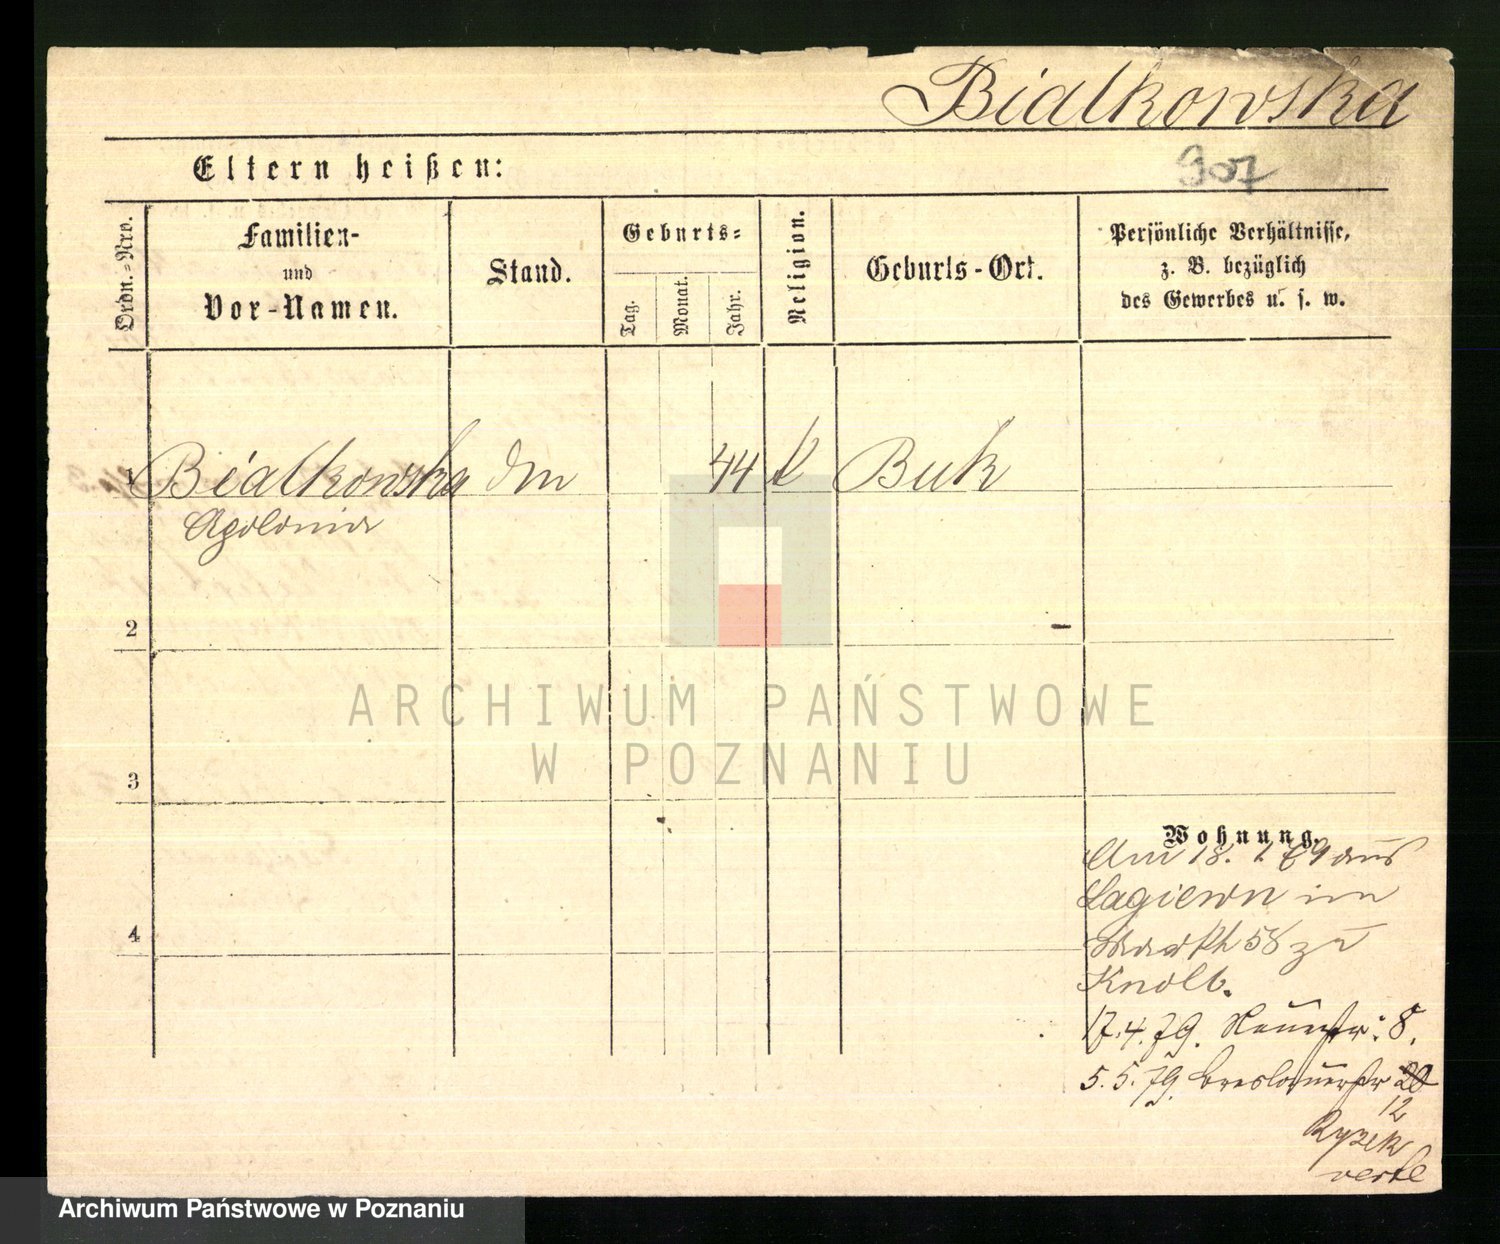 Bialkowska
Eltern heißen:
907
Ordn.-Nro.
Familien-
und
Vor-Namen.
Stand.
Geburts-
Tag.
Monat.
Jahr.
Religion.
Geburts-Ort.
Persönliche Verhältnisse,
z. B. bezüglich
des Gewerbes u. s. w.
1 Bialkowska 44 k Buk
Apolonia
2
3
4
ARCHIWUM PAŃSTWOWE
W POZNANIU
Wohnung.
Am 18. 79 aus
Lagiewn im
Markt 58 zu
Knolb.
17.4.79. Neuestr: 8.
5.5.79. Breslauerstr
12
Ryzek
Archiwum Państwowe w Poznaniu